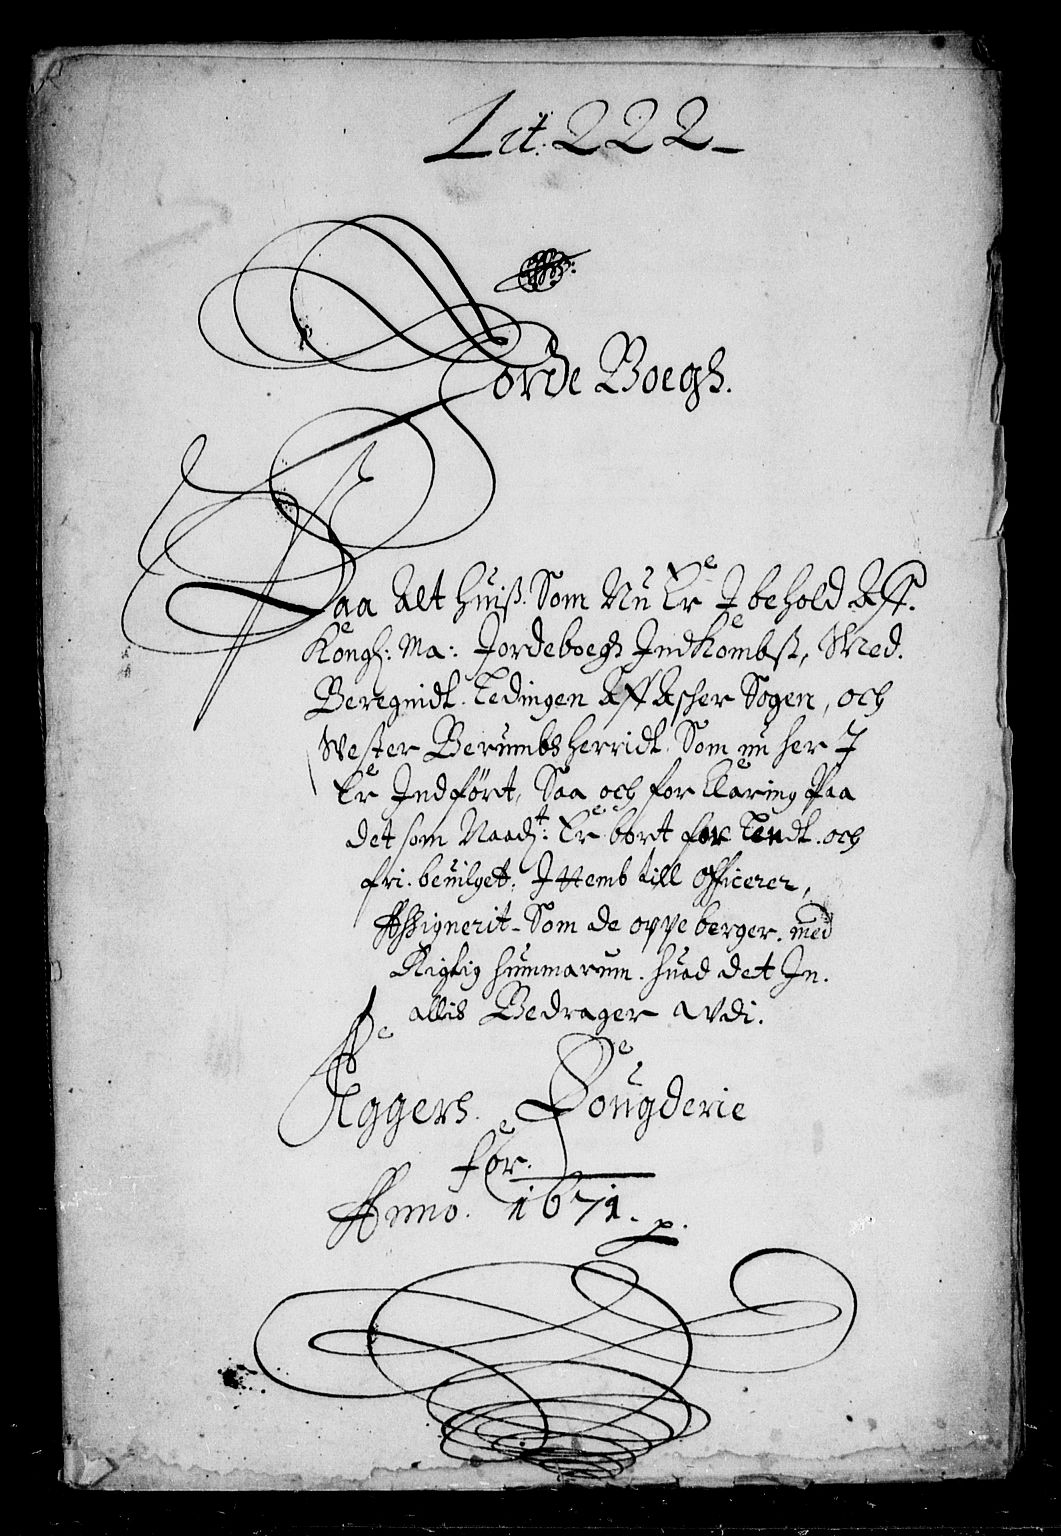 Lit: 222
Jorde Boegh.
Paa Alt huiß. Som Nu Er J behold Aff.
Kongl: Ma: Jordeboegs Indkombst, Med.
Beregnidt. Tedingen Aff Asher Sogen, och
Wester Berumbs herridt. Som nu her J
Er Indført, Saa och forklaring Paa
det som Naadst: Er bort forLendt. och
fri. beuilget; Jttemb till Officerer,
Assignerit Som de oppeberger. med
Rigtig Summarum. huad det In.
allis Bedrager Udi.
Aggers. Fougderie
for.
Anno. 1671.